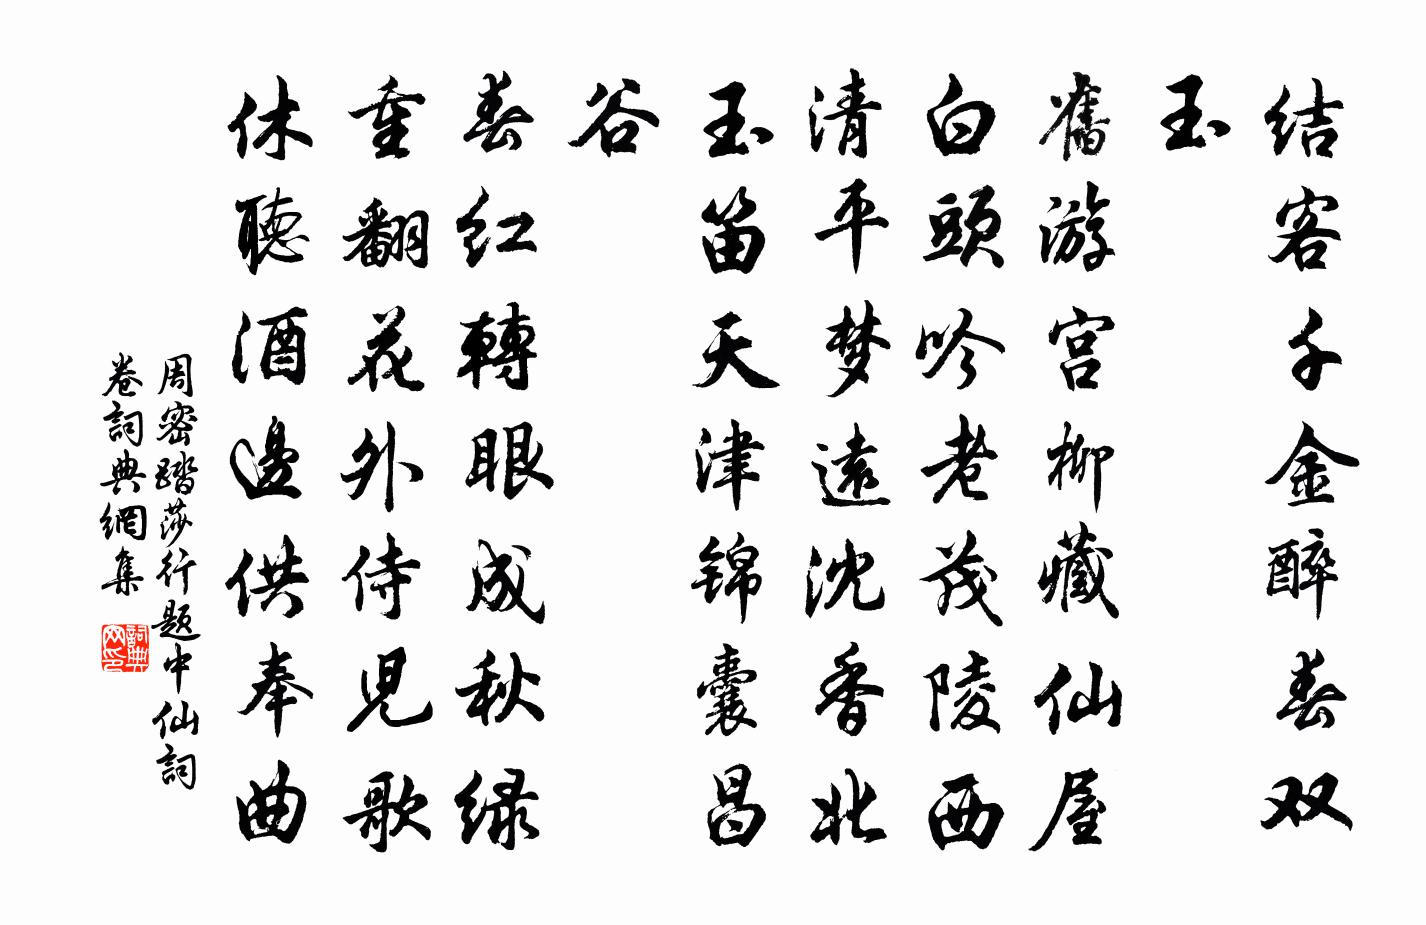 结客千金醉春双
玉
舊游宫柳藏仙屋
白頭吟老茂陵西
清平梦遠沈香北
玉笛天津锦囊昌
谷
春红轉眼成秋绿
重翻花外侍児歌
休聽酒邊供奉曲
周密踏莎行题中仙詞
卷詞典網集
詞典
网印